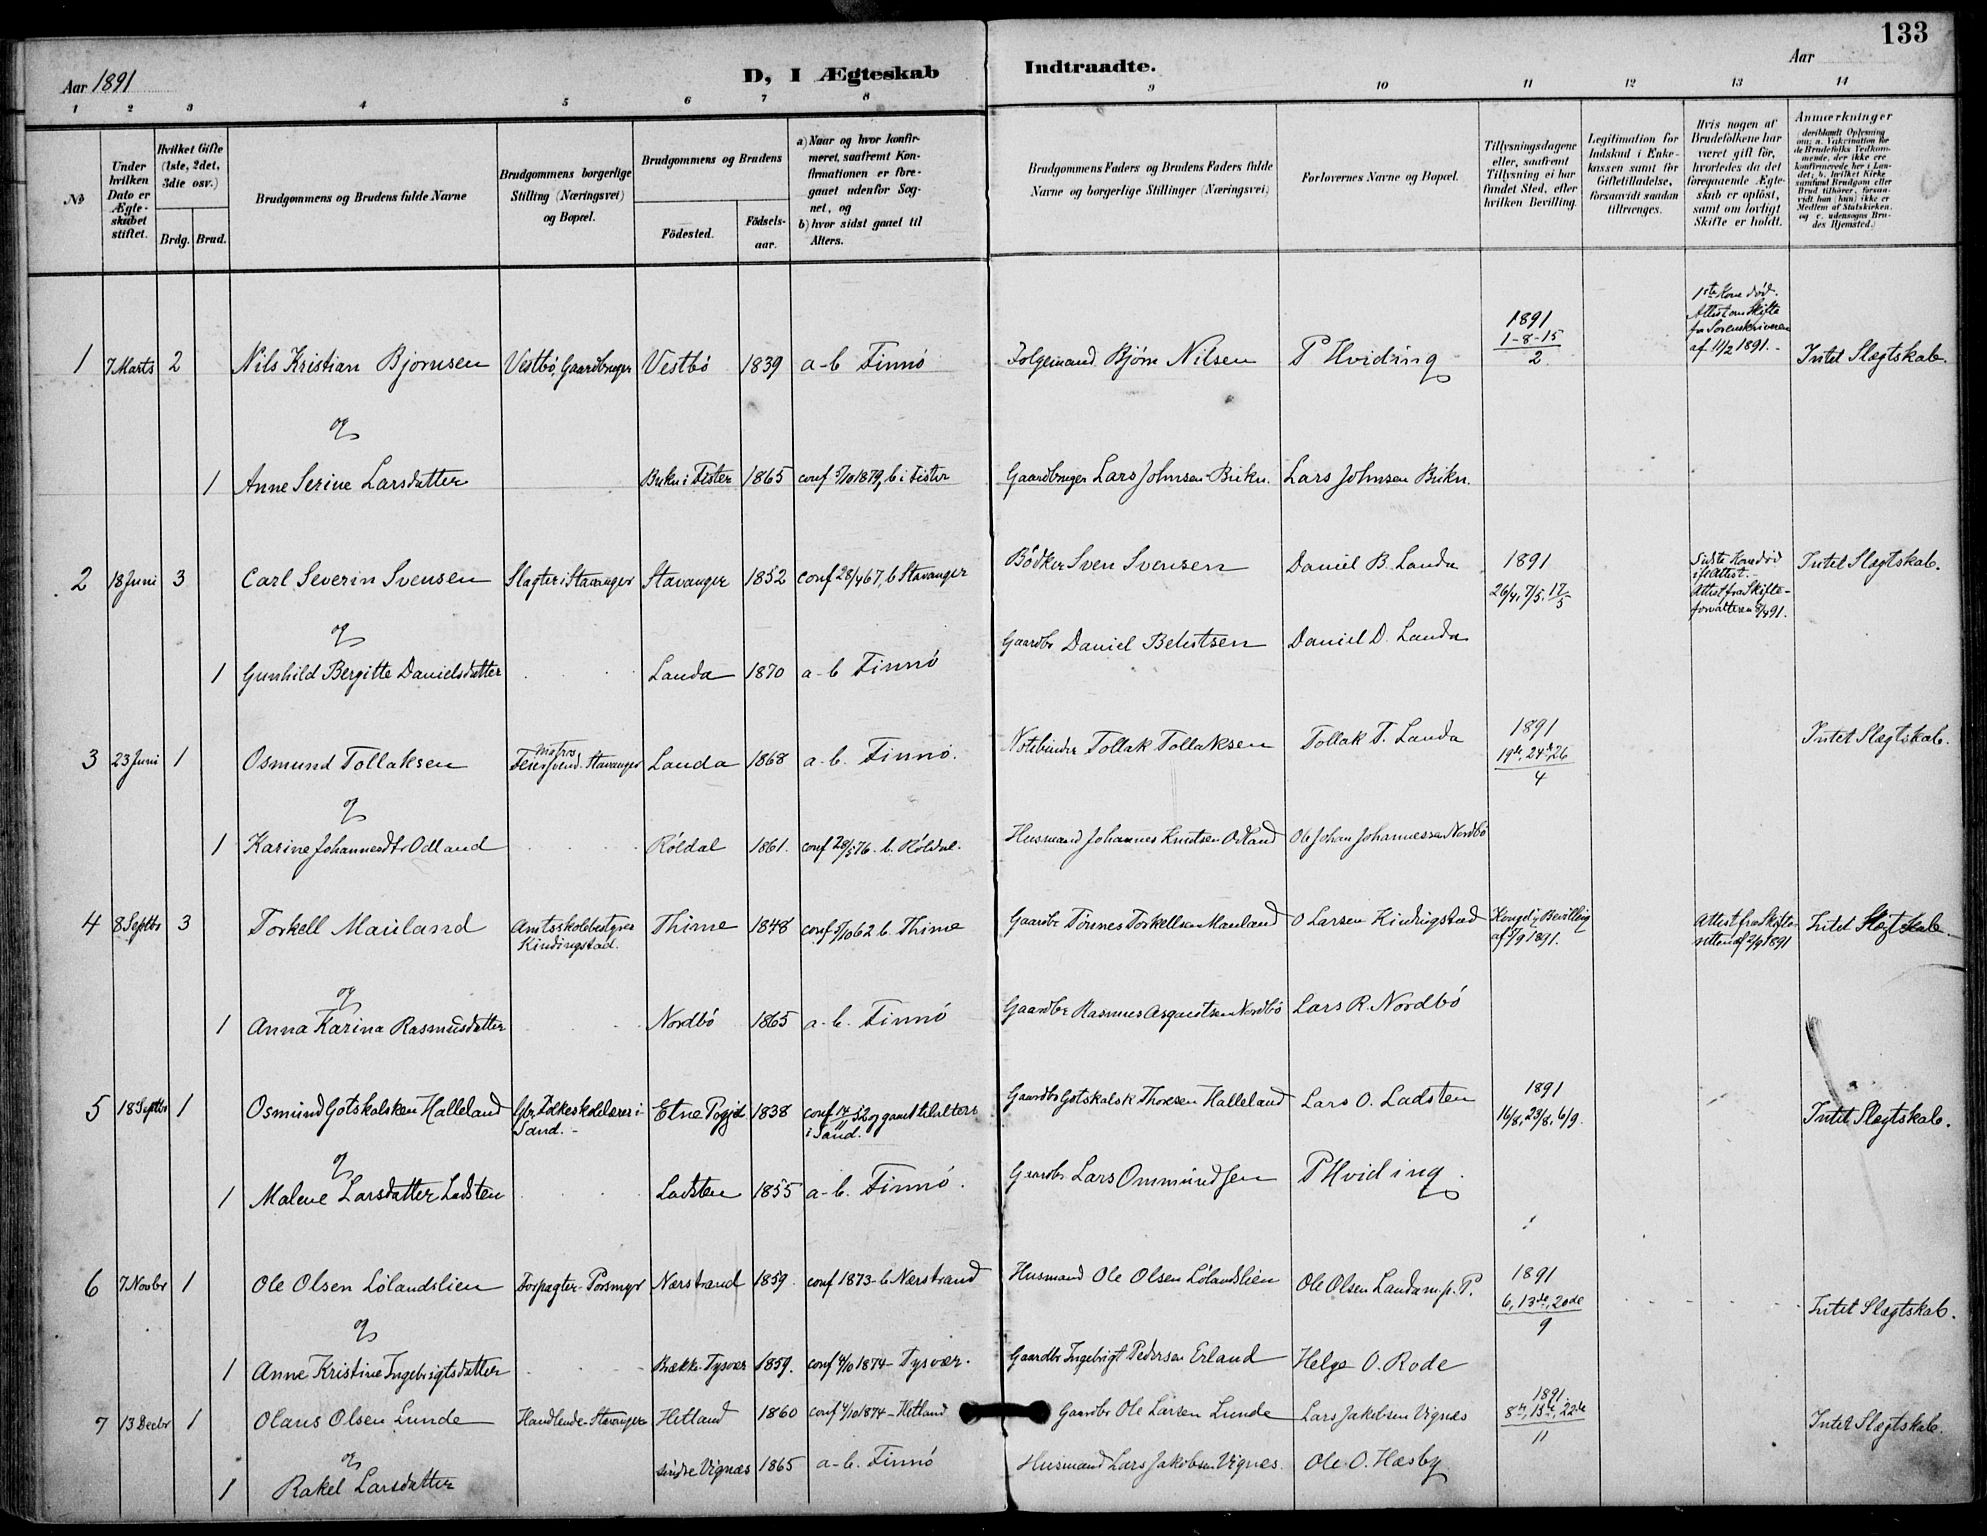 133
Aar 1891
D, I Ægteskab Indtraadte.
Aar
1 2 3 4 5 6 7 8 9 10 11 12 13 14
No
Under hvilken Dato er Ægteskabet stiftet.
Hvilket Gifte (1ste, 2det, 3die osv.)
Brdg. Brud.
Brudgommens og Brudens fulde Navne
Brudgommens borgerlige Stilling (Næringsvei) og Bopæl.
Brudgommens og Brudens
Födested. Födselsaar.
a) Naar og hvor konfirmeret, saafremt Konfirmationen er foregaaet udenfor Sognet, og
b) hvor sidst gaaet til Alters.
Brudgommens Faders og Brudens Faders fulde Navne og borgerlige Stillinger (Næringsvei)
Forlovernes Navne og Bopæl.
Tillysningsdagene eller, saafremt Tillysning ei har fundet Sted, efter hvilken Bevilling.
Legitimation for Indskud i Enkekassen samt for Giftetilladelse, forsaavidt saadan tiltrænges.
Hvis nogen af Brudefolkene har været gift för, hvorledes da det foregaaende Ægteskab er oplöst, samt om lovligt Skifte er holdt.
Anmærkninger (deriblandt Oplysning om: a. Vakcination for de Brudefolks Vedkommende, der ikke ere konfirmerede her i Landet; b. hvilket Kirkesamfund Brudgom eller Brud tilhører, forsaavidt han (hun) ikke er Medlem af Statskirken. og c. udensogns Brudes Hjemsted.)
1 7 Marts 2 Nils Kristian Bjørnsen Vestbö, Gaardbruger Vestbö 1839 a-b Finnö Folgemand Bjørn Nilsen P Hviding 1891 1-8-15/2. 1ste Kone död. Attest om Skifte fra Sorenskriveren af 11/2 1891. Intet Slægtskab.
og
1 Anne Serine Larsdatter i Fister 1865 conf 5/10 1879, b i Fister Gaardbruger Lars Johnsen Lars Johnsen
2 18 Juni 3 Carl Severin Svensen Slagter i Stavanger Stavanger 1852 conf 28/4 67, b Stavanger Bödker Sven Svensen Daniel B. Landa 1891 26/4, 7/5, 17/5 Sidste Kone död Attest. Attest fra Skifteforvalteren 91. Intet Slægtskab.
og
1 Gunhild Bergitte Danielsdatter Landa 1870 a-b Finnö Gaardbr Daniel Daniel D. Landa
3 23 Juni 1 Osmund Tollaksen Matros Stavanger Landa 1868 a-b. Finnö. Notebinder Tollak Tollaksen Tollak T. Landa 1891 19de, 24de, 26/4 Intet Slægtskab.
og
1 Karine Johannesdtr Odland Röldal 1861. conf 28/5 76. b. Röldal. Husmand Johannes Knutsen Odland Ole Johan Johannessen Nordbö
4 8 Septbr 3 Torkell Mauland Amtsskolebestyrer Kindingstad. Thime 1848 conf 5/10 62 b. Thime Gaardbr Tönnes Torkellsen Mauland O Larsen Kindingstad Kongelig Bevilling af 5/9 1891. Attest fra Skifteretten af 2/9 1891 Intet Slægtskab.
og
1 Anna Karina Rasmusdatter Nordbö 1865 a-b. Finnö Gaardbr Rasmus Nordbö Lars R. Nordbö
5 18 Septbr 1 Osmund Gotskalsken Halleland Gbr. Folkeskolelærer i Sand. Etne 1838 conf 14/11 52 og gaaet til alters i Sand. Gaardbr Gotskalsk Thoresen Halleland Lars O. Ladsten 1891 16/8, 23/8, 6/9. Intet Slægtskab.
og
1 Malene Larsdatter Ladsten Ladsten 1855 a-b. Finnö. Gaardbr Lars Ommundsen P Hviding
6 7 Novbr 1 Ole Olsen Lölandslien Forpagter Porsmyr Nærstrand 1859. conf 1873 b Nærstrand Husmand Ole Olsen Lölandslien Ole Olsen Landa m. p. P. 1891 6, 13de, 20de/9 Intet Slægtskab.
og
1 Anne Kristine Ingebrigtsdatter Bække Tysvær 1859. conf 4/10 1874 - Tysvær. Gaardbr Ingebrigt Pedersen Erland Helge O. Rode
7 13 Decbr 1 Olaus Olsen Lunde Handlende - Stavanger Hetland 1860 conf 4/10 1874 - Hetland Gaardbr Ole Larsen Lunde Lars Jakobsen Vignæs 1891 8de, 15de, 22de/11 Intet Slægtskab.
og
1 Rakel Larsdatter Vignæs 1865 a-b. Finnö Husmand Lars Jakobsen Vignæs. Ole O. Hæsby